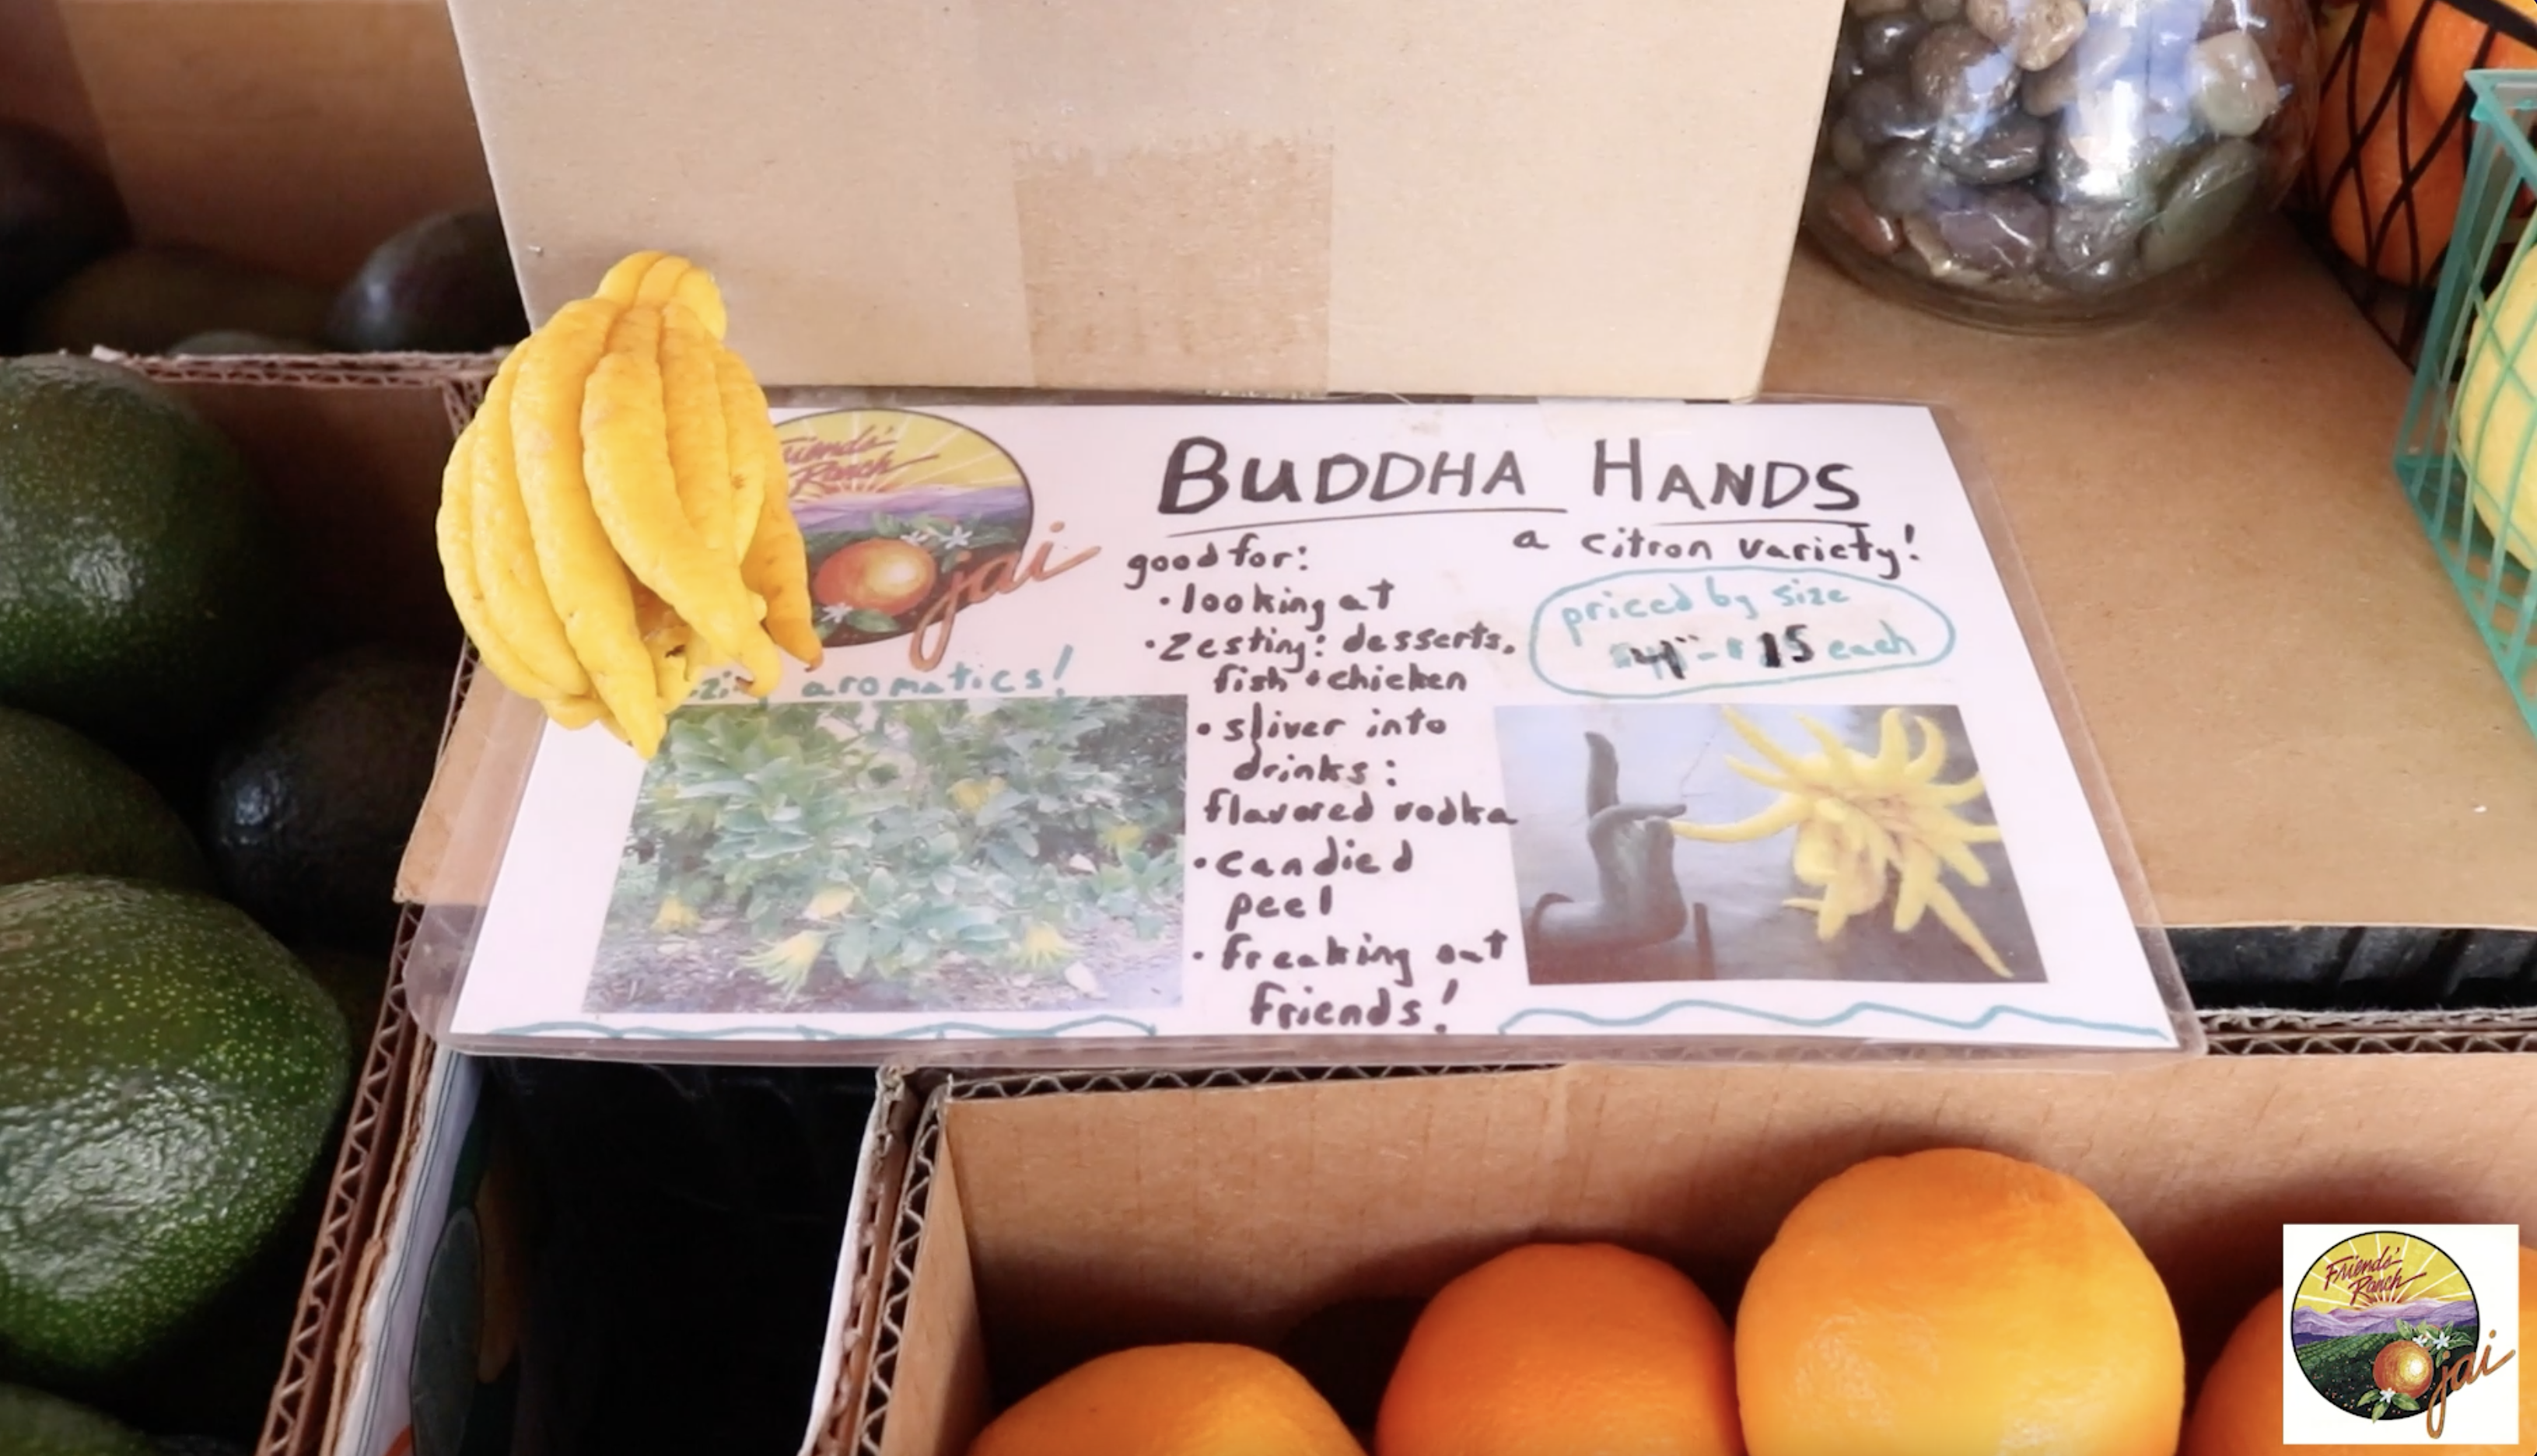 Friends'
Ranch
Ojai
BUDDHA HANDS
a citron variety!
good for:
• looking at
• Zesting: desserts,
fish + chicken
• sliver into
drinks:
flavored vodka
• Candied
peel
• Freaking out
Friends!
priced by size
15 each
aromatics!
Friends'
Ranch
Ojai